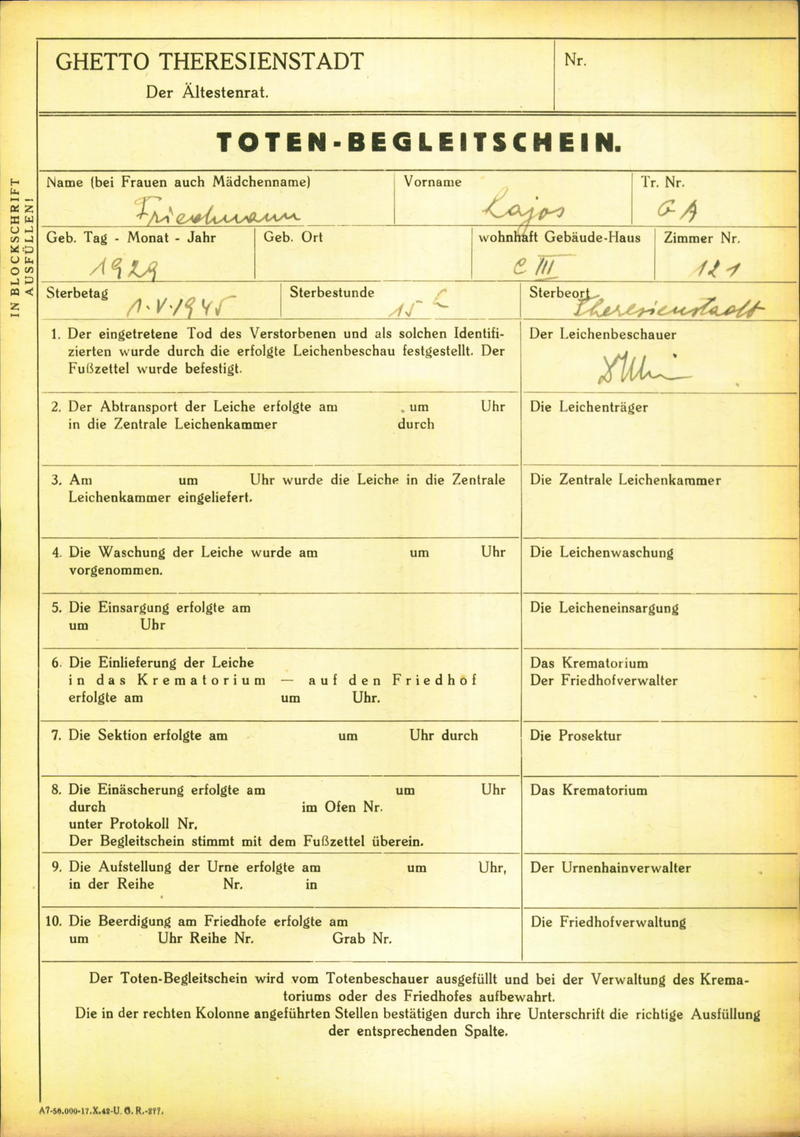 GHETTO THERESIENSTADT
Der Ältestenrat.
Nr.
TOTEN-BEGLEITSCHEIN.
IN BLOCKSCHRIFT
AUSFÜLLEN!
Name (bei Frauen auch Mädchenname)
Vorname
Tr. Nr.
Friedmann
Lajos
Geb. Tag - Monat - Jahr
Geb. Ort
wohnhaft Gebäude-Haus
Zimmer Nr.
1929
C III
121
Sterbetag
Sterbestunde
Sterbeort
1.V.1945
15
Theresienstadt
1. Der eingetretene Tod des Verstorbenen und als solchen Identifi-
zierten wurde durch die erfolgte Leichenbeschau festgestellt. Der
Fußzettel wurde befestigt.
Der Leichenbeschauer
2. Der Abtransport der Leiche erfolgte am um Uhr
in die Zentrale Leichenkammer durch
Die Leichenträger
3. Am um Uhr wurde die Leiche in die Zentrale
Leichenkammer eingeliefert.
Die Zentrale Leichenkammer
4. Die Waschung der Leiche wurde am um Uhr
vorgenommen.
Die Leichenwaschung
5. Die Einsargung erfolgte am
um Uhr
Die Leicheneinsargung
6. Die Einlieferung der Leiche
in das Krematorium — auf den Friedhof
erfolgte am um Uhr.
Das Krematorium
Der Friedhofverwalter
7. Die Sektion erfolgte am um Uhr durch
Die Prosektur
8. Die Einäscherung erfolgte am um Uhr
durch im Ofen Nr.
unter Protokoll Nr.
Der Begleitschein stimmt mit dem Fußzettel überein.
Das Krematorium
9. Die Aufstellung der Urne erfolgte am um Uhr,
in der Reihe Nr. in
Der Urnenhainverwalter
10. Die Beerdigung am Friedhofe erfolgte am
um Uhr Reihe Nr. Grab Nr.
Die Friedhofverwaltung
Der Toten-Begleitschein wird vom Totenbeschauer ausgefüllt und bei der Verwaltung des Krema-
toriums oder des Friedhofes aufbewahrt.
Die in der rechten Kolonne angeführten Stellen bestätigen durch ihre Unterschrift die richtige Ausfüllung
der entsprechenden Spalte.